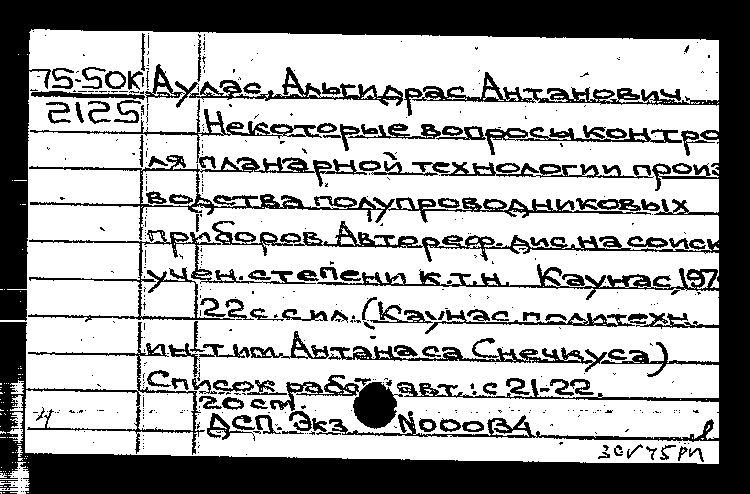 75-50К Аулас, Альгидрас Антанович.
2125 Некоторые вопросы контро
ля планарной технологии произ
водства полупроводниковых
приборов. Автореф. дис. на соиск
учен. степени к.т.н. Каунас, 197
22 с. с ил. (Каунас. политехн.
ин-т им. Антанаса Снечкуса)
Список работ авт.: с 21-22.
20 см.
ДСП. Экз. N000134.